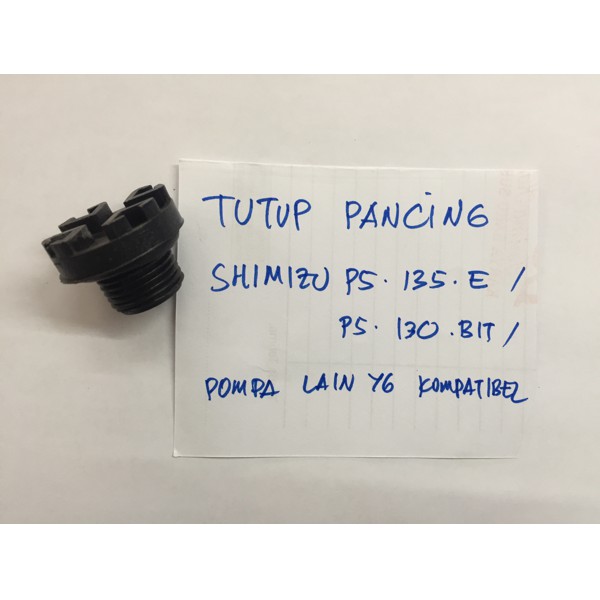 TUTUP PANCING
SHIMIZU PS. 135. E /
PS. 130. BIT /
POMPA LAIN YG KOMPATIBEL